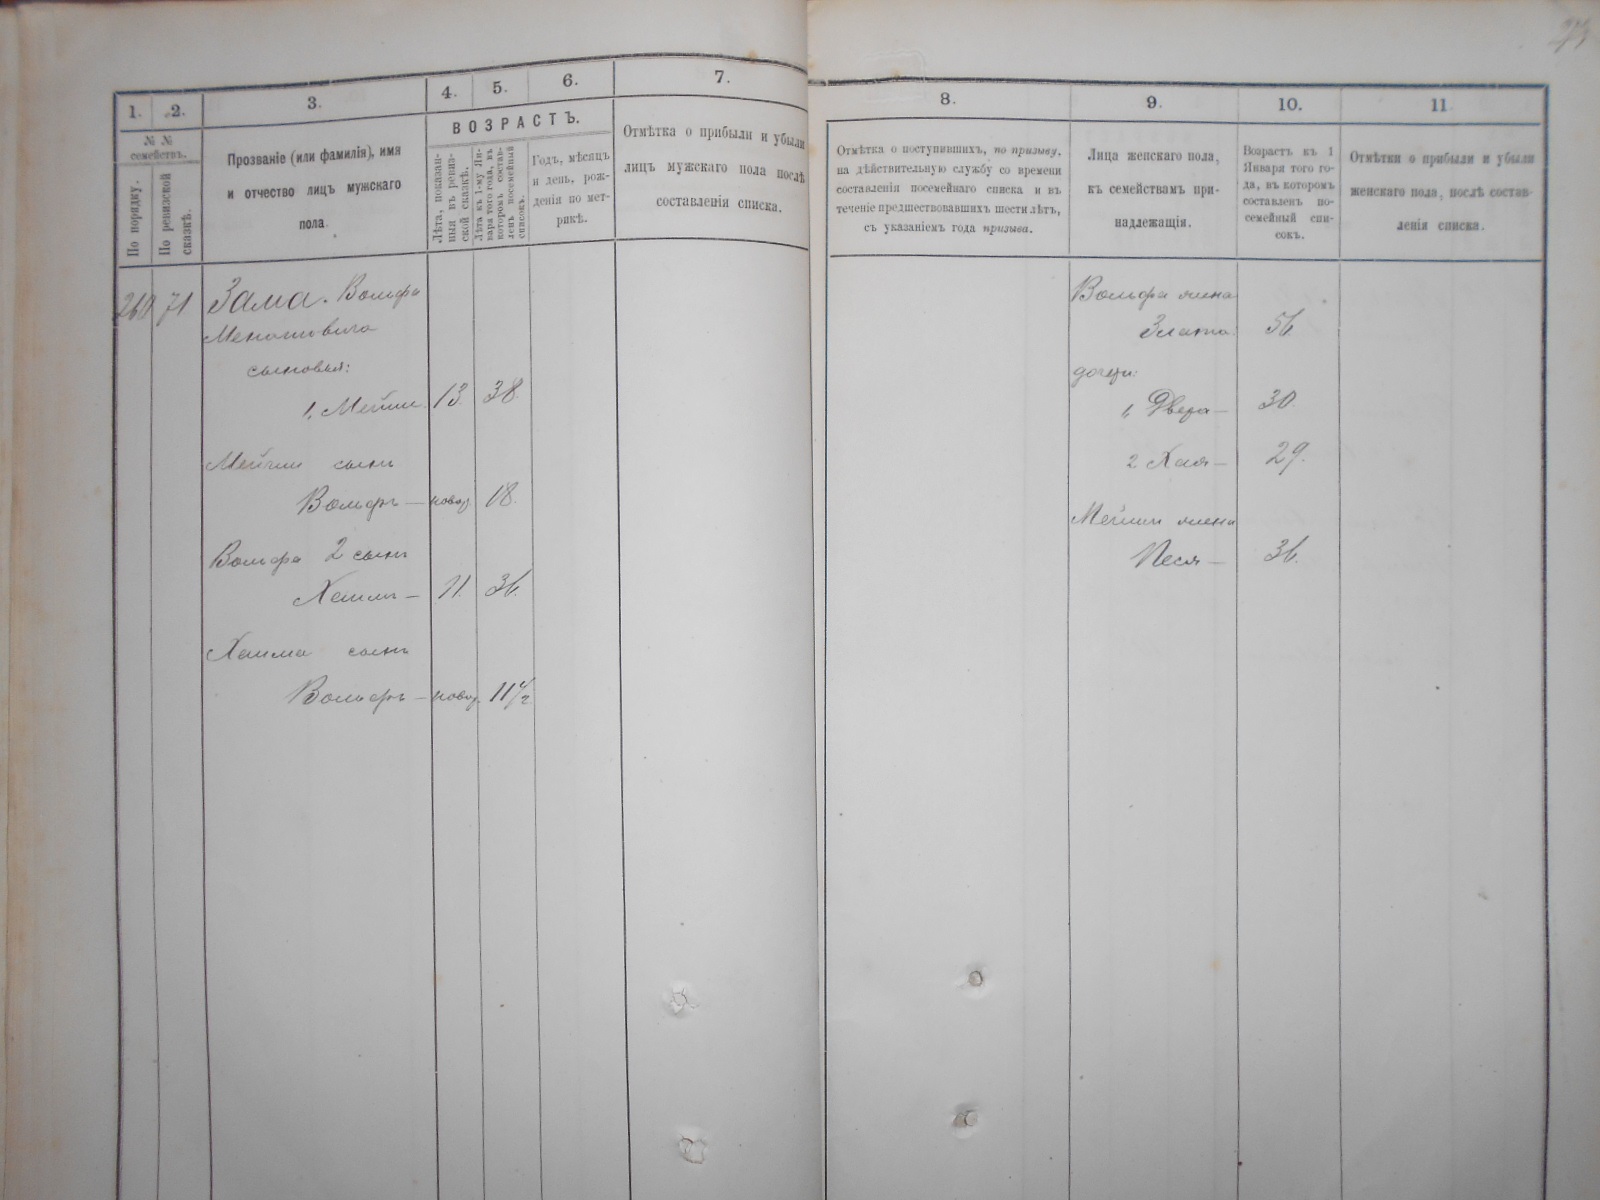 1. 2. 3. 4. 5. 6. 7.
№ №
семействъ.
По порядку.
По ревизской
сказкѣ.
Прозваніе (или фамилія), имя
и отчество лицъ мужскаго
пола.
ВОЗРАСТЪ.
Лѣта, показан-
ныя въ ревиз-
ской сказкѣ.
Лѣта къ 1-му Ян-
варя того года, въ
которомъ состав-
ленъ посемейный
списокъ.
Годъ, мѣсяцъ
и день, рож-
денія по мет-
рикѣ.
Отмѣтка о прибыли и убыли
лицъ мужскаго пола послѣ
составленія списка.
260 71 Зама. Вольфа
сыновья:
1, Мейши 13. 38.
Мейши сынъ
Вольфъ — новор. 18.
Вольфа 2 сынъ
Хаимъ — 11. 36.
Хаима сынъ
Вольфъ — новор. 11 1/2
8. 9. 10. 11
Отмѣтка о поступившихъ, по призыву,
на дѣйствительную службу со времени
составленія посемейнаго списка и въ
теченіе предшествовавшихъ шести лѣтъ,
съ указаніемъ года призыва.
Лица женскаго пола,
къ семействамъ при-
надлежащія.
Возрастъ къ 1
Января того го-
да, въ которомъ
составленъ по-
семейный спи-
сокъ.
Отмѣтки о прибыли и убыли
женскаго пола, послѣ состав-
ленія списка.
Вольфа жена
Злата 56.
дочери:
1, Двера — 30.
2 Хая — 29.
Мейши жена
Песя — 36.